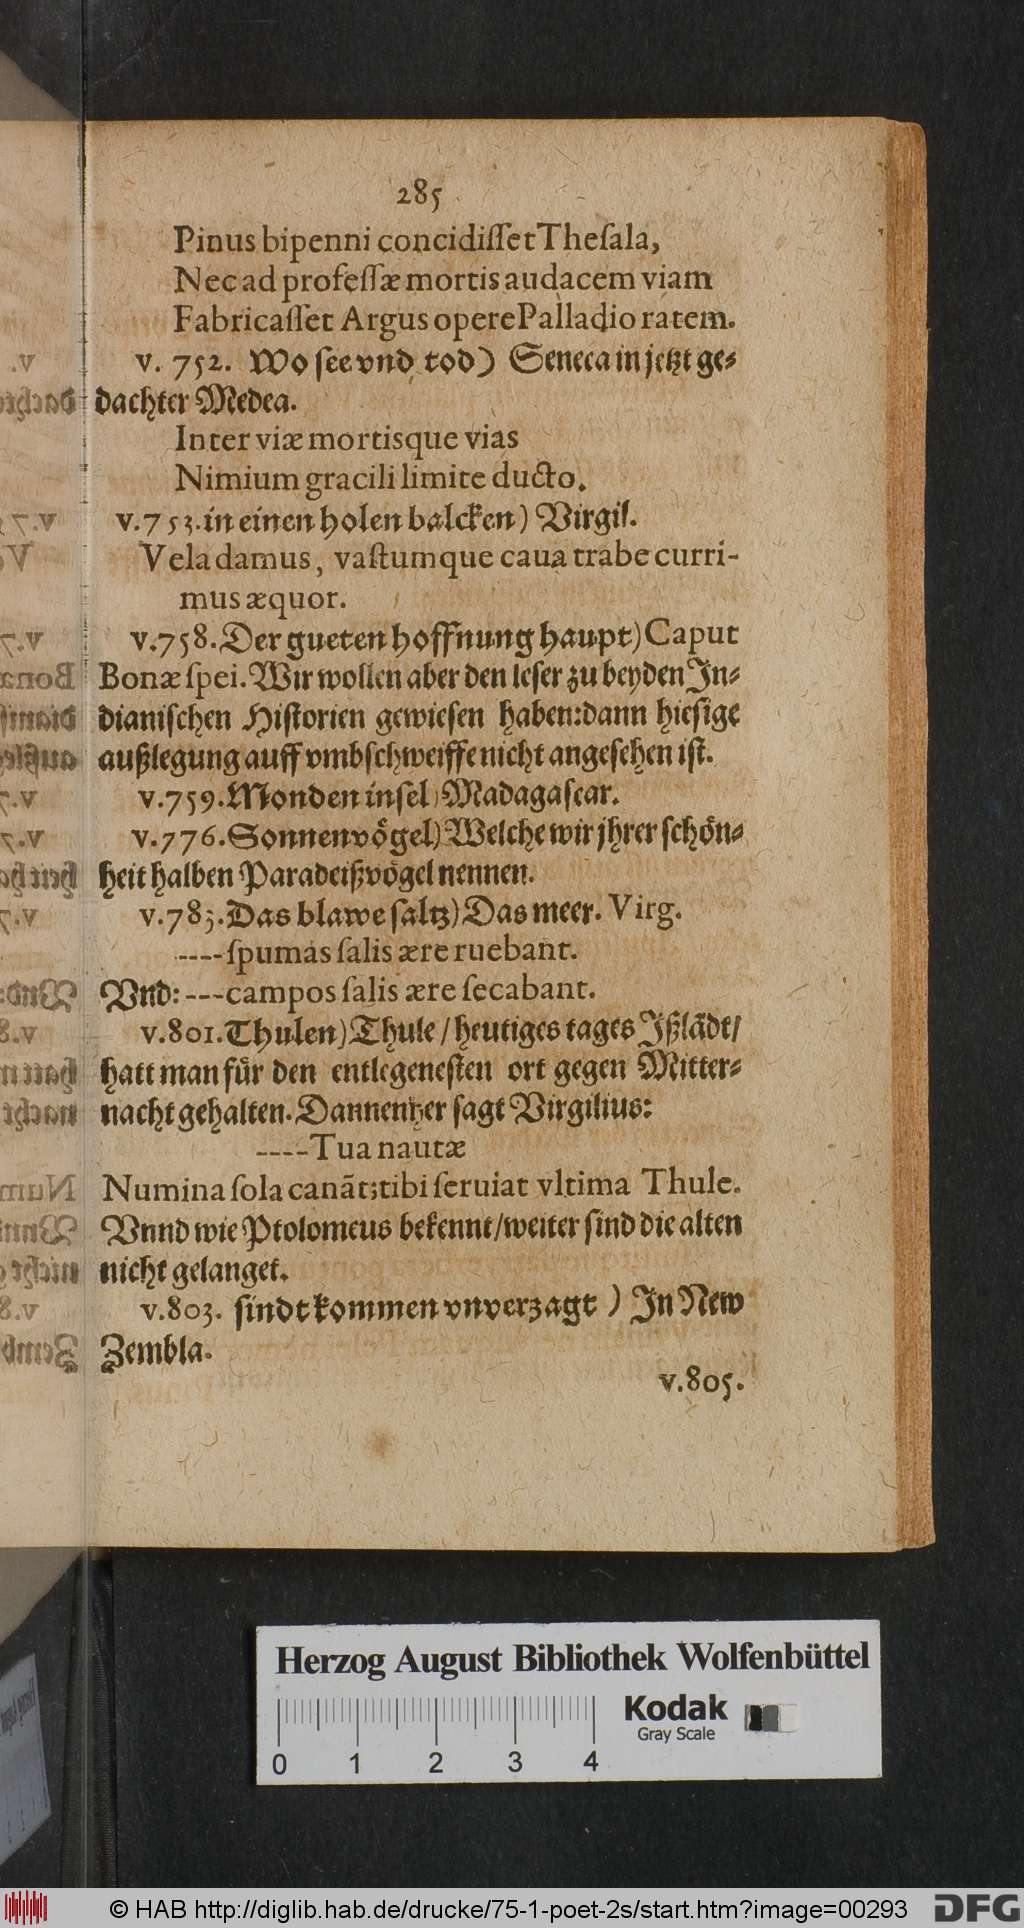 285
Pinus bipenni concidiſſet Theſala,
Nec ad profeſſæ mortis audacem viam
Fabricaſſet Argus opere Palladio ratem.
v. 752. Wo ſee vnd tod) Seneca in jetzt ge⸗
dachter Medea.
Inter viæ mortisque vias
Nimium gracili limite ducto.
v.753. in einen holen balcken) Virgil.
Vela damus, vaſtumque caua trabe curri-
mus æquor.
v.758. Der gueten hoffnung haupt) Caput
Bonæ ſpei. Wir wollen aber den leſer zu beyden In⸗
dianiſchen Hiſtorien gewieſen haben: dann hieſige
außlegung auff vmbſchweiffe nicht angeſehen iſt.
v.759. Monden inſel) Madagaſcar.
v.776. Sonnenvoͤgel) Welche wir jhrer ſchoͤn⸗
heit halben Paradeißvoͤgel nennen.
v.783. Das blawe ſaltz) Das meer. Virg.
----ſpumas ſalis ære ruebant.
Vnd: ---campos ſalis ære ſecabant.
v.801. Thulen) Thule / heutiges tages Jßlãdt/
hatt man fuͤr den entlegeneſten ort gegen Mitter⸗
nacht gehalten. Dannentzer ſagt Virgilius:
----Tua nautæ
Numina ſola canãt; tibi ſeruiat vltima Thule.
Vnnd wie Ptolomeus bekennt/ weiter ſind die alten
nicht gelanget.
v.803. ſindt kommen vnverzagt ) In New
Zembla.
v.805.
Herzog August Bibliothek Wolfenbüttel
Kodak
Gray Scale
0 1 2 3 4
© HAB http://diglib.hab.de/drucke/75-1-poet-2s/start.htm?image=00293
DFG